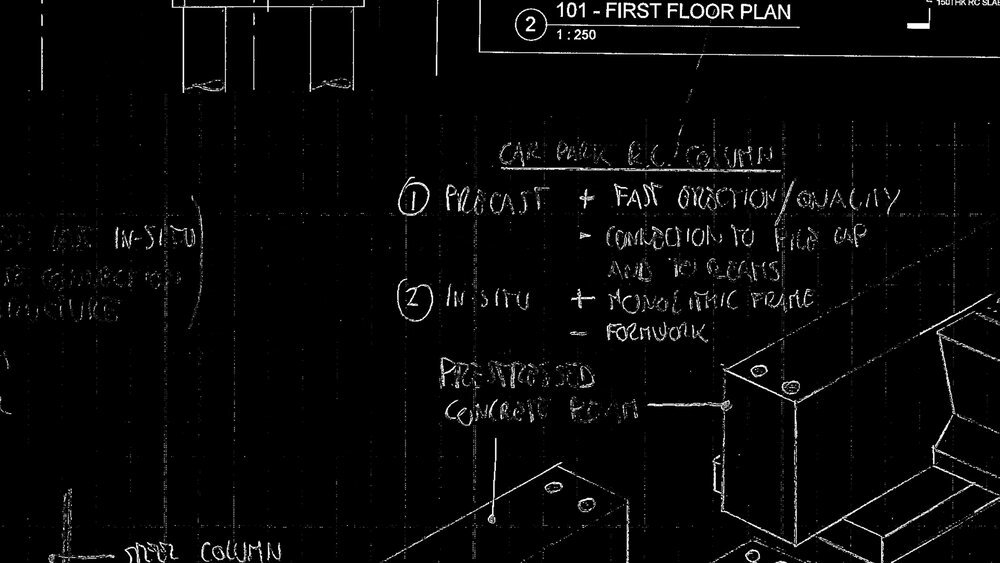 150THK RC SLAB
101 - FIRST FLOOR PLAN
2
1 : 250
CAR PARK R.C. COLUMN
1 PRECAST + FAST ERECTION/QUALITY
- CONNECTION TO PILE CAP
AND TO BEAMS
2 IN-SITU + MONOLITHIC FRAME
- FORMWORK
IN-SITU
CONNECTION
STRUCTURE
PRESTRESSED
CONCRETE BEAM
STEEL COLUMN